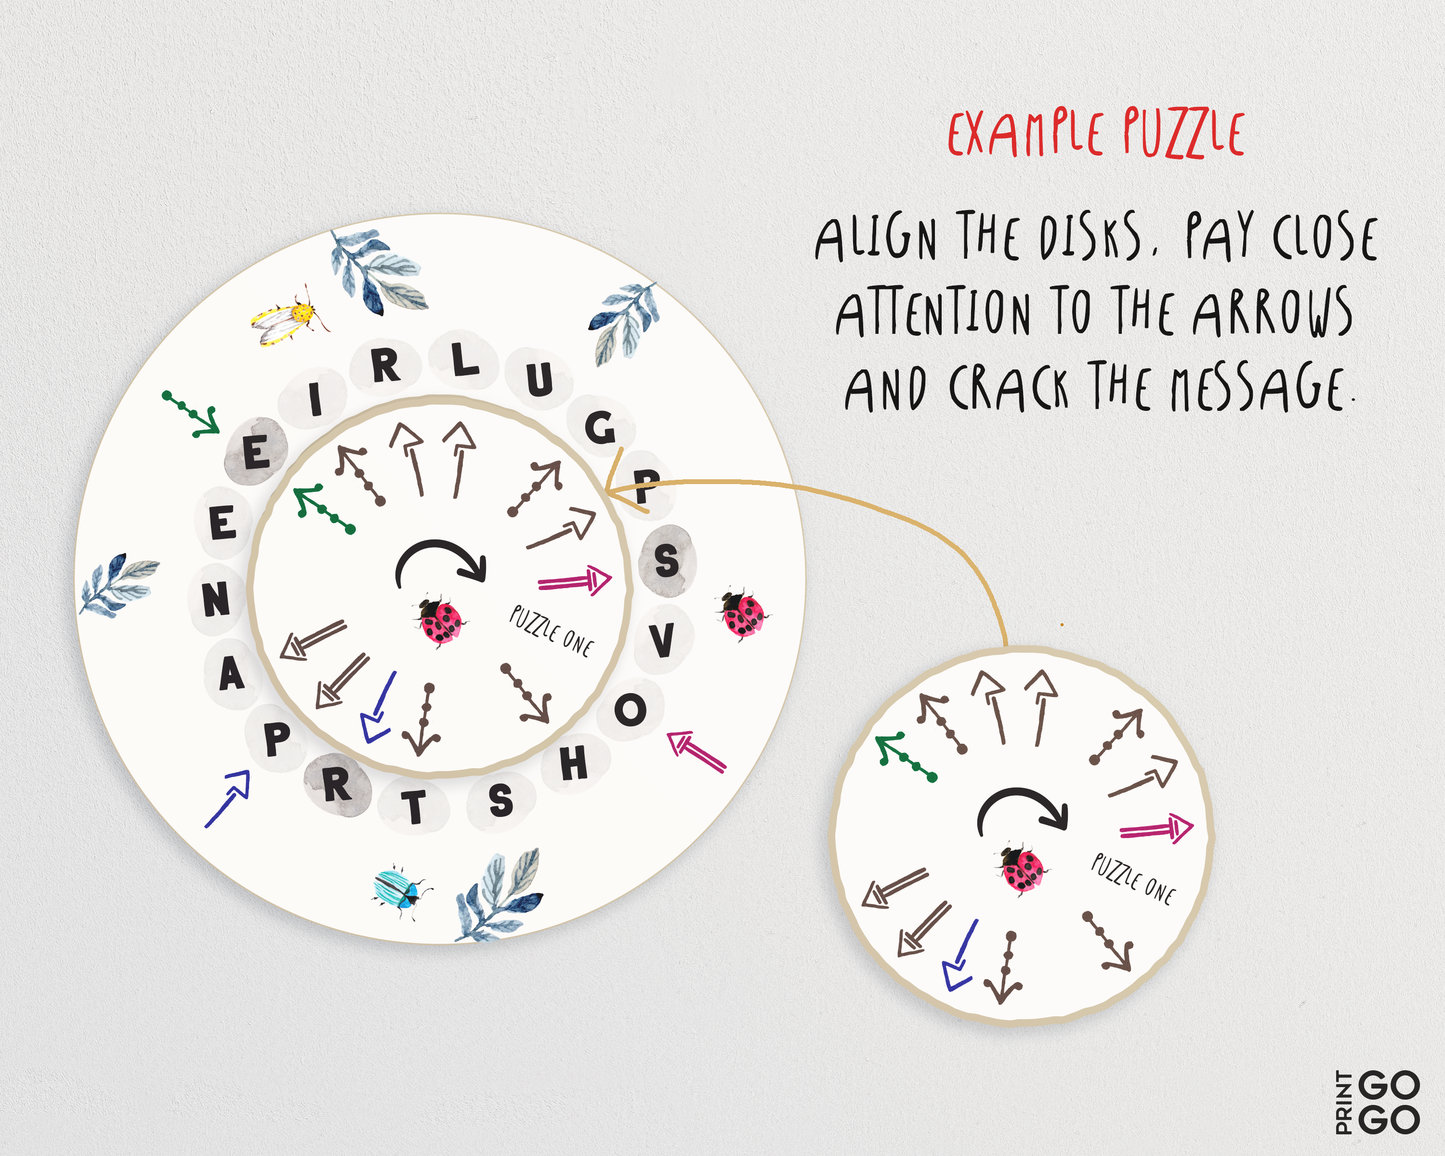 EXAMPLE PUZZLE
ALIGN THE DISKS, PAY CLOSE
ATTENTION TO THE ARROWS
AND CRACK THE MESSAGE.
E I R L U G P S V O H S T R P A N E
PUZZLE ONE
PUZZLE ONE
PRINT
GO
GO